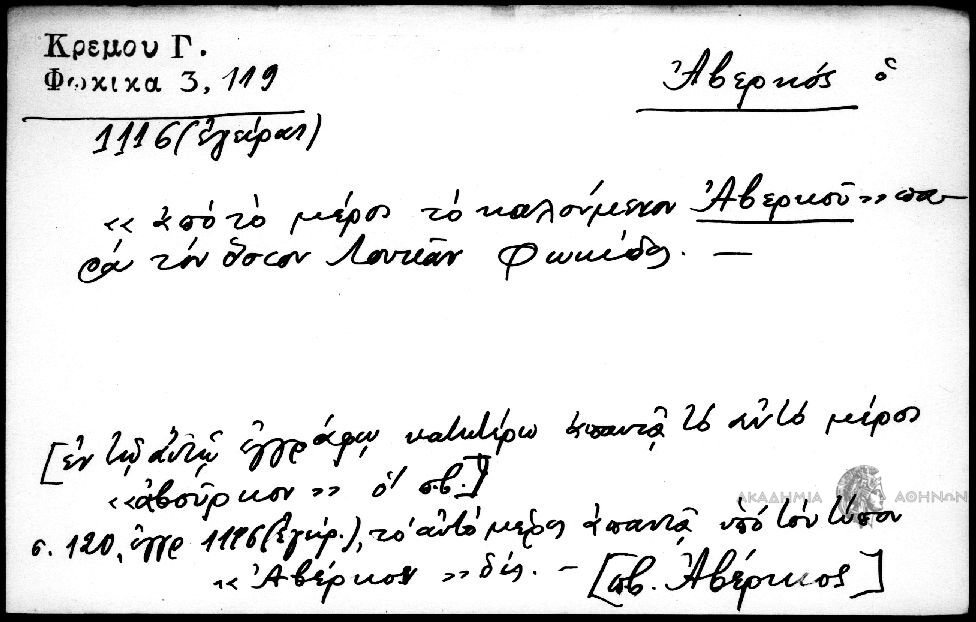 Κρεμου Γ.
Φωκικα 3, 119
Ἀβερκός ὁ
1116 (ἔγγραφ)
«ἀπὸ τὸ μέρος τὸ καλούμενον Ἀβερκοῦ» πα-
ρὰ τὸν ὅσιον Λουκᾶν Φωκίδος. —
[ἐν τῷ αὐτῷ ἐγγράφῳ κατωτέρω ἀπαντᾷ τὸ αὐτὸ μέρος
«ἀβοῦρκον» ὁ πβ.]
σ. 120, ἔγγρ 1116 τὸ αὐτὸ μέρος ἀπαντᾷ ὑπὸ τὸν τύπον
«Ἀβέρκον» δίς. — [πβ. Ἀβέρκιος]
ΑΚΑΔΗΜΙΑ ΑΘΗΝΩΝ